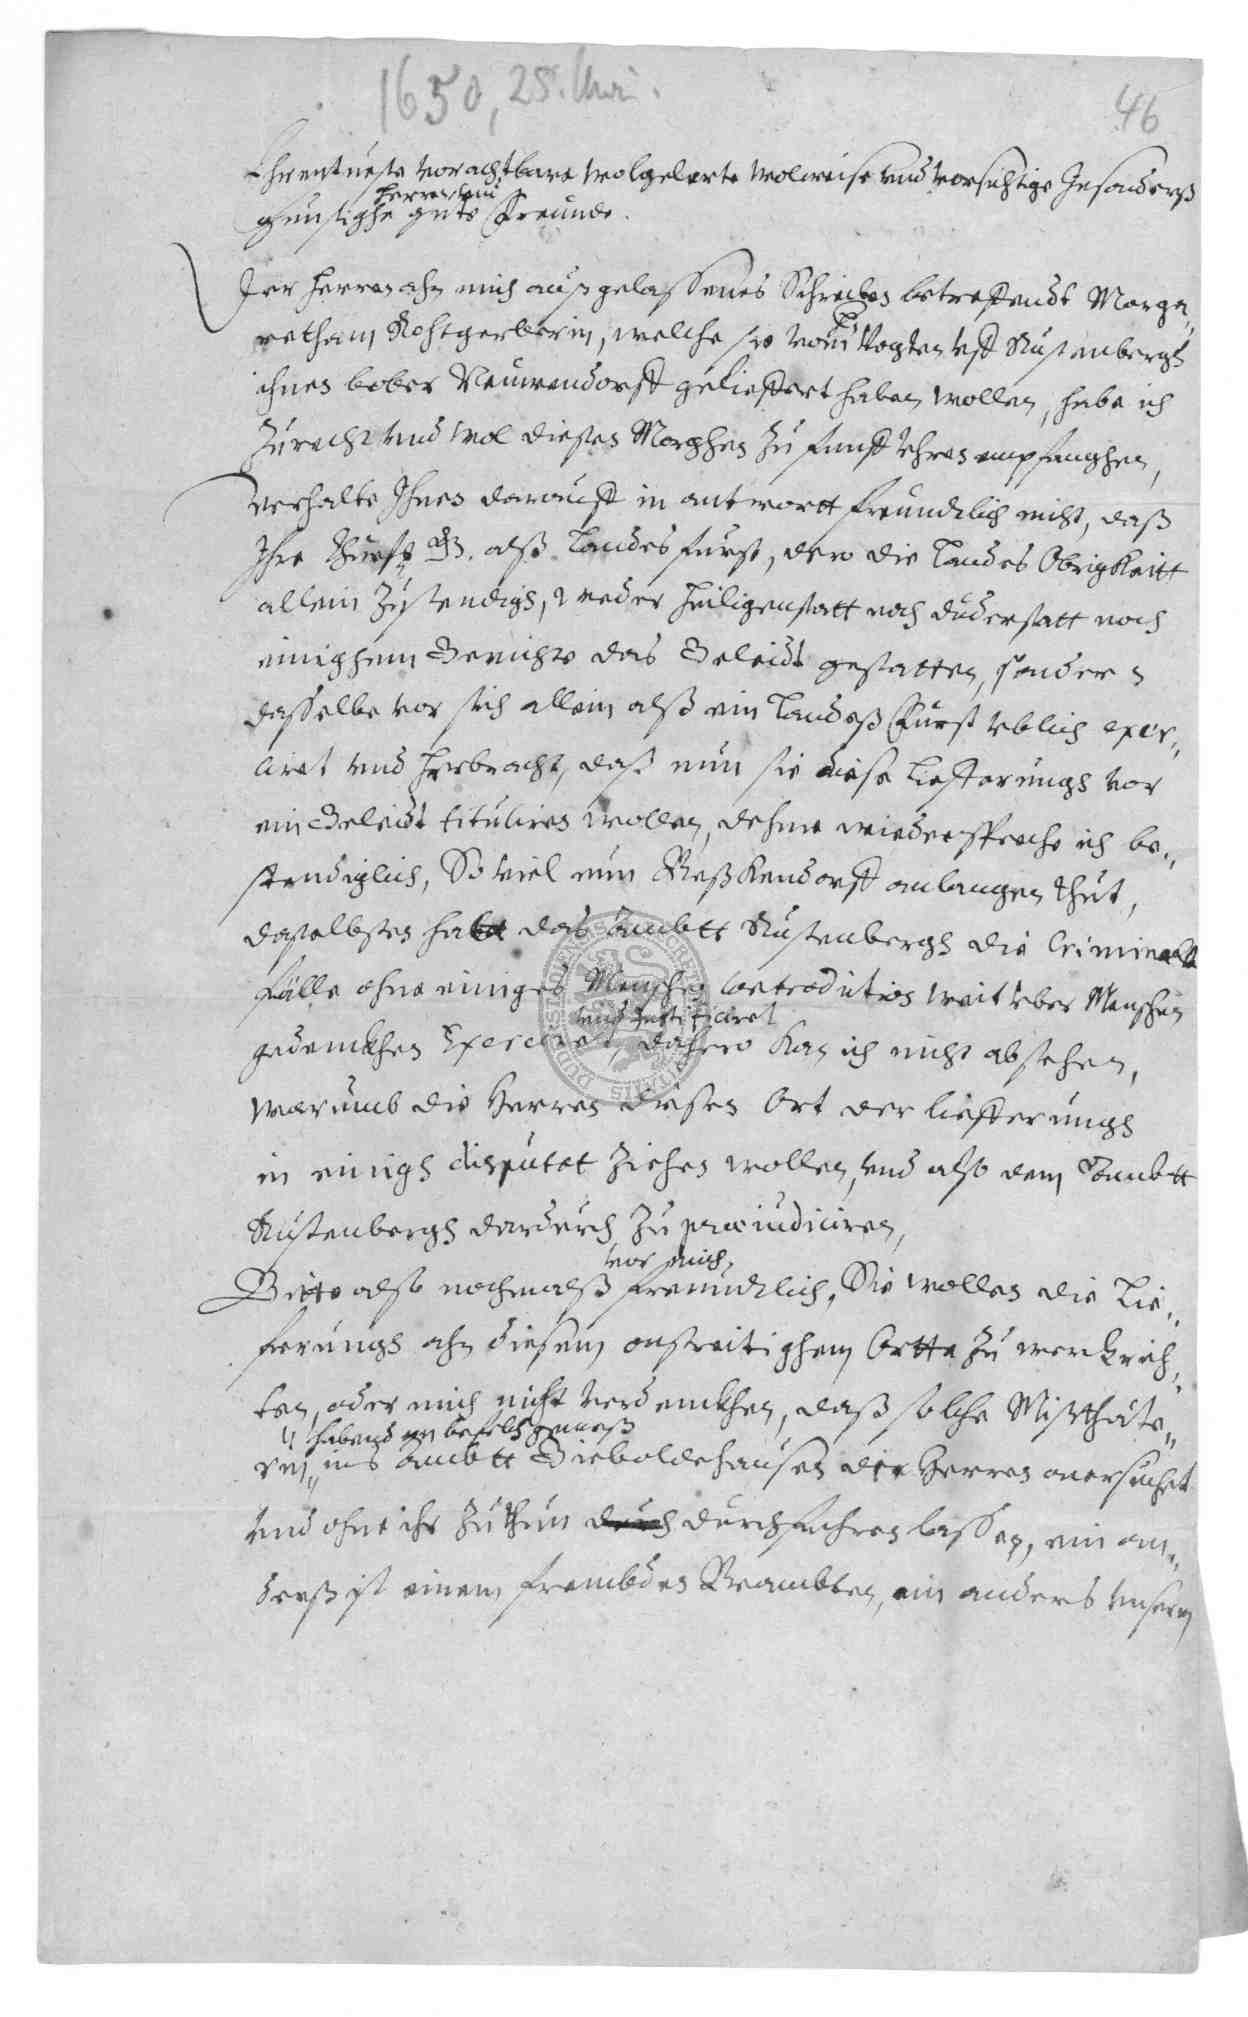 1650, 25. Mai.
46
Ehrentueste vorachtbare wolgelerte wolweise vnd vorsichtige Jnsonderß
herren vnd
gunstighe gute Freunde.
Jer herren ahn mich außgelassenes Schreiben betreffendt Marga„
retham Rohtgerberin, welche sie vom Vogten vff Rustenbergh
ihnen bober Neuwendorff geliefert haben wollen, habe ich
zurecht vnd wol dieses Morghen zu funff vhren empfanghen,
verhalte Jhnen darauff in antwortt freundtlich nicht, daß
Jhre Churf. G. alß Landesfurst, dero die Landes Obrigkeitt
allein zustendigh, weder Heiligenstatt noch Duderstatt noch
einighem Gerichte das Geleidt gestatten, sondern
dasselbe vor sich allein alß ein Landeß Furst vblich exer„
ciret vnd herbracht, daß nun sie diese Liefferungh vor
ein Geleidt tituliren wollen, dehme wiederspreche ich be„
stendiglich, So viel nun Weßkendorff anlangen thut,
daselbsten hatt das Ambtt Rustenbergh die Criminal
fälle ohne einiges Menschen contradition weit vber Menschen
vnd justificiret
gedenckhen Exerciret, dahero kan ich nicht absehen,
warumb die Herren diesen Ort der liefferungh
in einigh disputat ziehen wollen, vnd also dem Ambtt
Rustenbergh dardurch zu praeiudiciren,
vor mich,
Bitte also nochmalß freundtlich, Sie wollen die Lie„
ferungh ahn diesem onstreitighem Ortte zu werck rich„
ten, oder mich nicht verdenckhen, daß solche Mißthäte„
habend en befelch gemeß
rin ins Ambtt Gieboldehausen der Herren onersuchet
vnd ohne ihr zuthun durch durchfuhren lassen, ein an„
derß ist einem frembden Beambten, ein anders vnserm